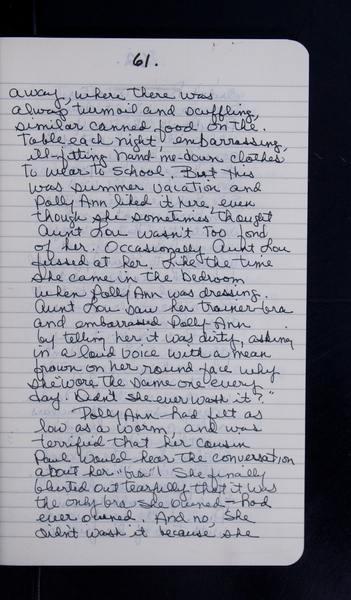 61.
away, where there was
always turmoil and scuffling,
similar canned food on the
table each night, embarrassing,
ill-fitting hand-me-down clothes
to wear to school. But this
was summer vacation and
Polly Ann liked it here, even
though she sometimes thought
Aunt Lou wasn't too fond
of her. Occasionally Aunt Lou
fussed at her. Like the time
she came in the bedroom
when Polly Ann was dressing.
Aunt Lou saw her trainer-bra
and embarrassed Polly Ann
by telling her it was dirty, asking
in a loud voice with a mean
frown on her round face why
she wore the same one every
day. Didn't she ever wash it?"
Polly Ann had felt as
low as a worm, and was
terrified that her cousin
Paul would hear the conversation
about her "bra"! She finally
blurted out tearfully that it was
the only bra she owned - had
ever owned. And no, she
didn't wash it because she